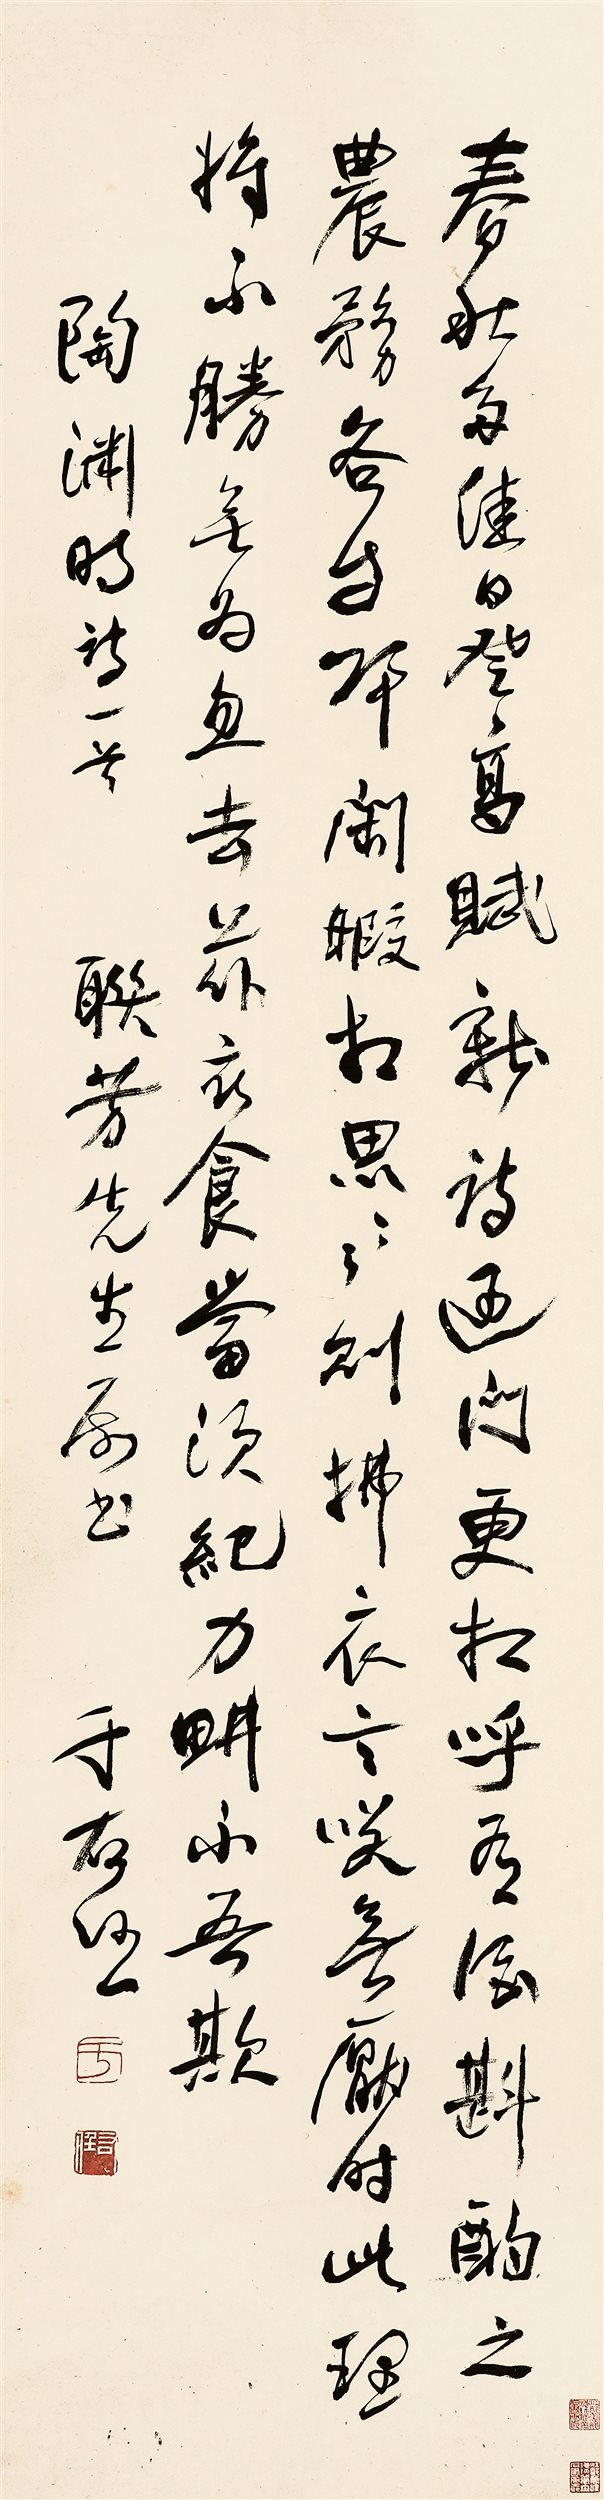 春秋多佳日登高賦新詩過門更相呼有酒斟酌之
農務各自歸閑暇相思思則披衣言笑無厭時此理
將不勝無為忽去茲衣食當須紀力畊不吾欺
陶淵明詩一首 聯芳先生屬書 于右任
右任